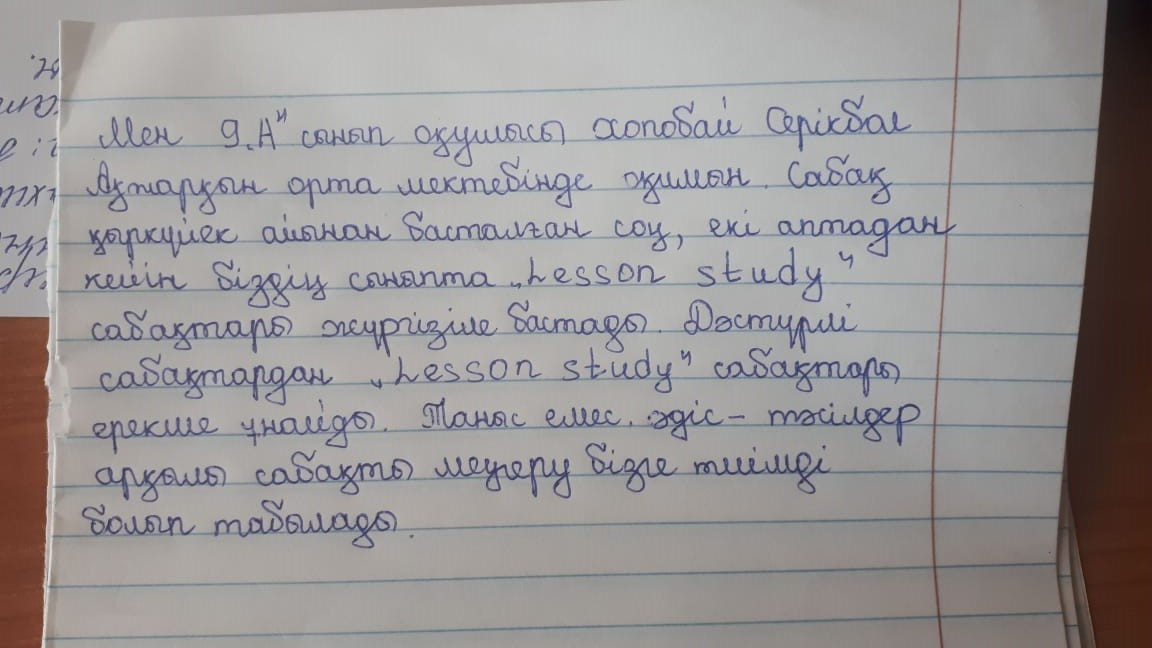 Мен 9„А" сынып оқушысы Жопобай Серікбал
Ақтарқын орта мектебінде оқимын. Сабақ
қыркүйек айынан басталған соң, екі аптадан
кейін біздің сыныпта „Lesson study"
сабақтары жүргізіле бастады. Дәстүрлі
сабақтардан „Lesson study" сабақтары
ерекше ұнайды. Таныс емес. әдіс-тәсілдер
арқылы сабақты меңгеру бізге тиімді
болып табылады.